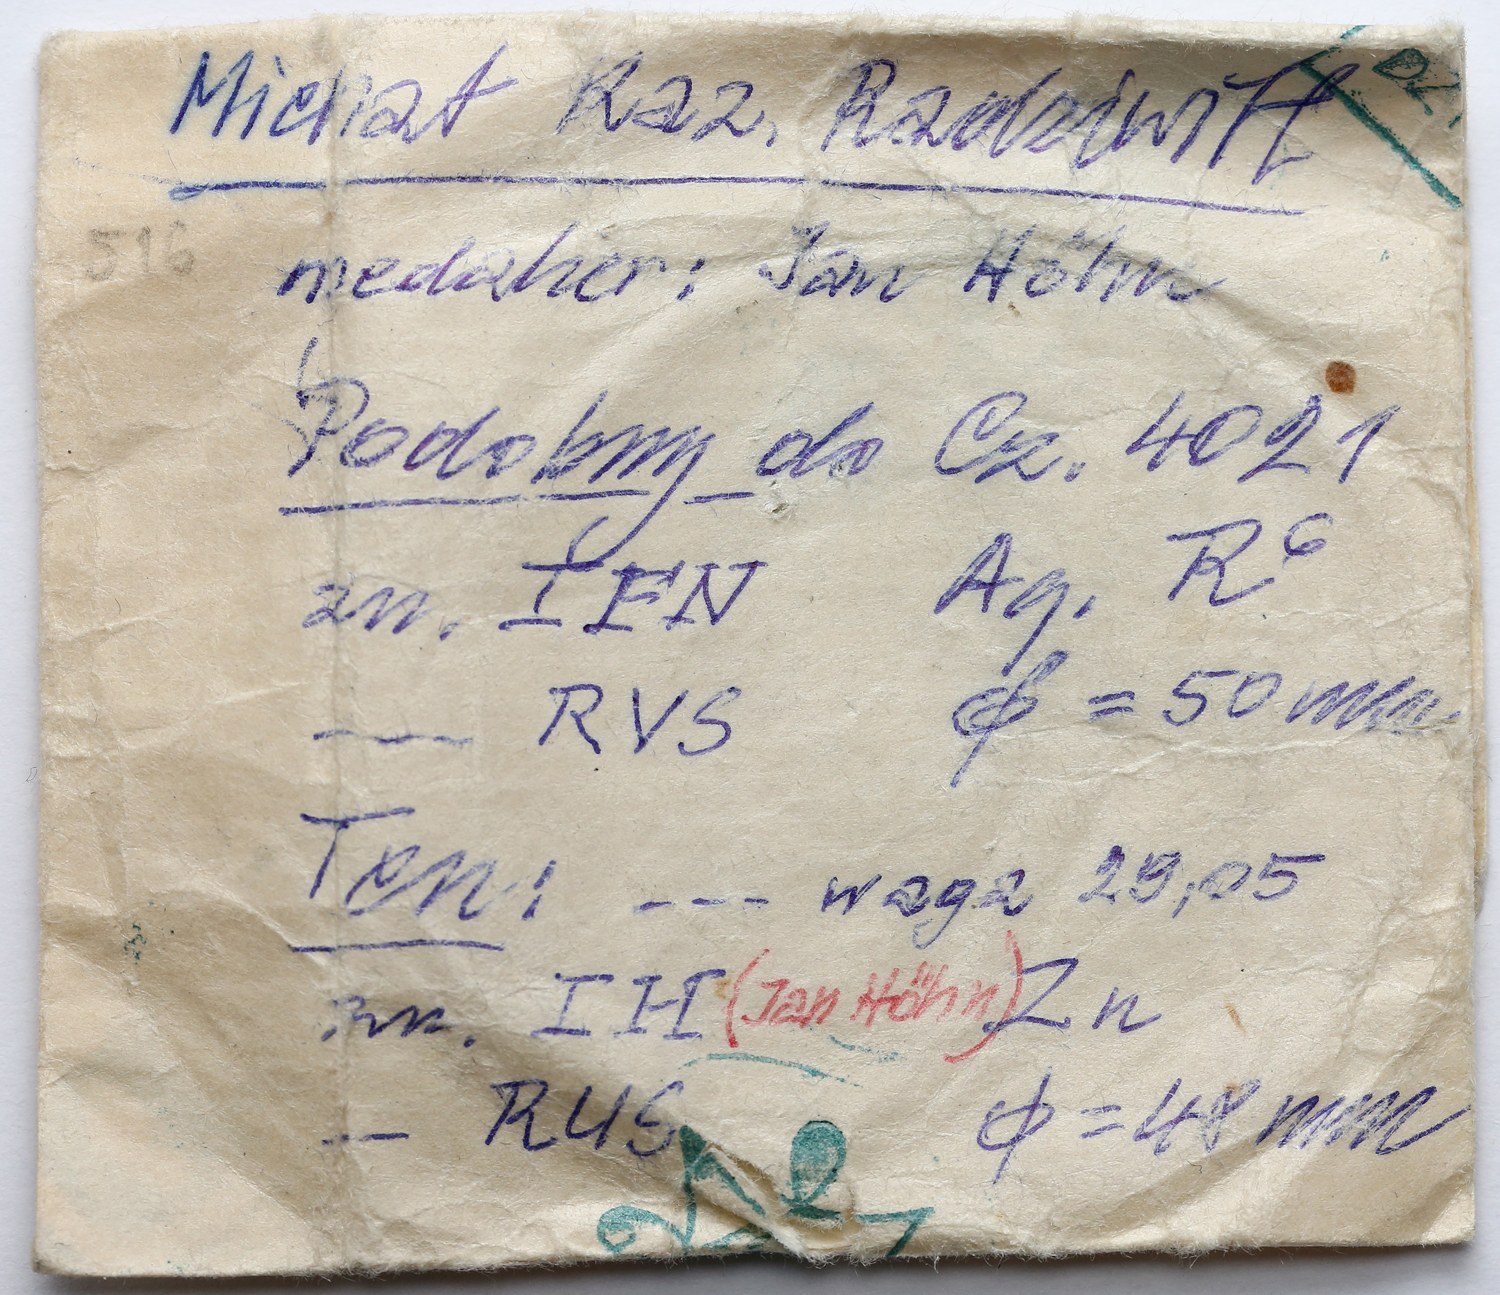 Michał Kaz. Radziwiłł
516
medalier: Jan Höhn
Podobny do Cz. 4021
zn. IFN Ag. R6
--- RVS ϕ = 50 mm
Ten: --- waga 29,05
zn. IH (Jan Höhn) Zn
-- RUS ϕ = 48 mm